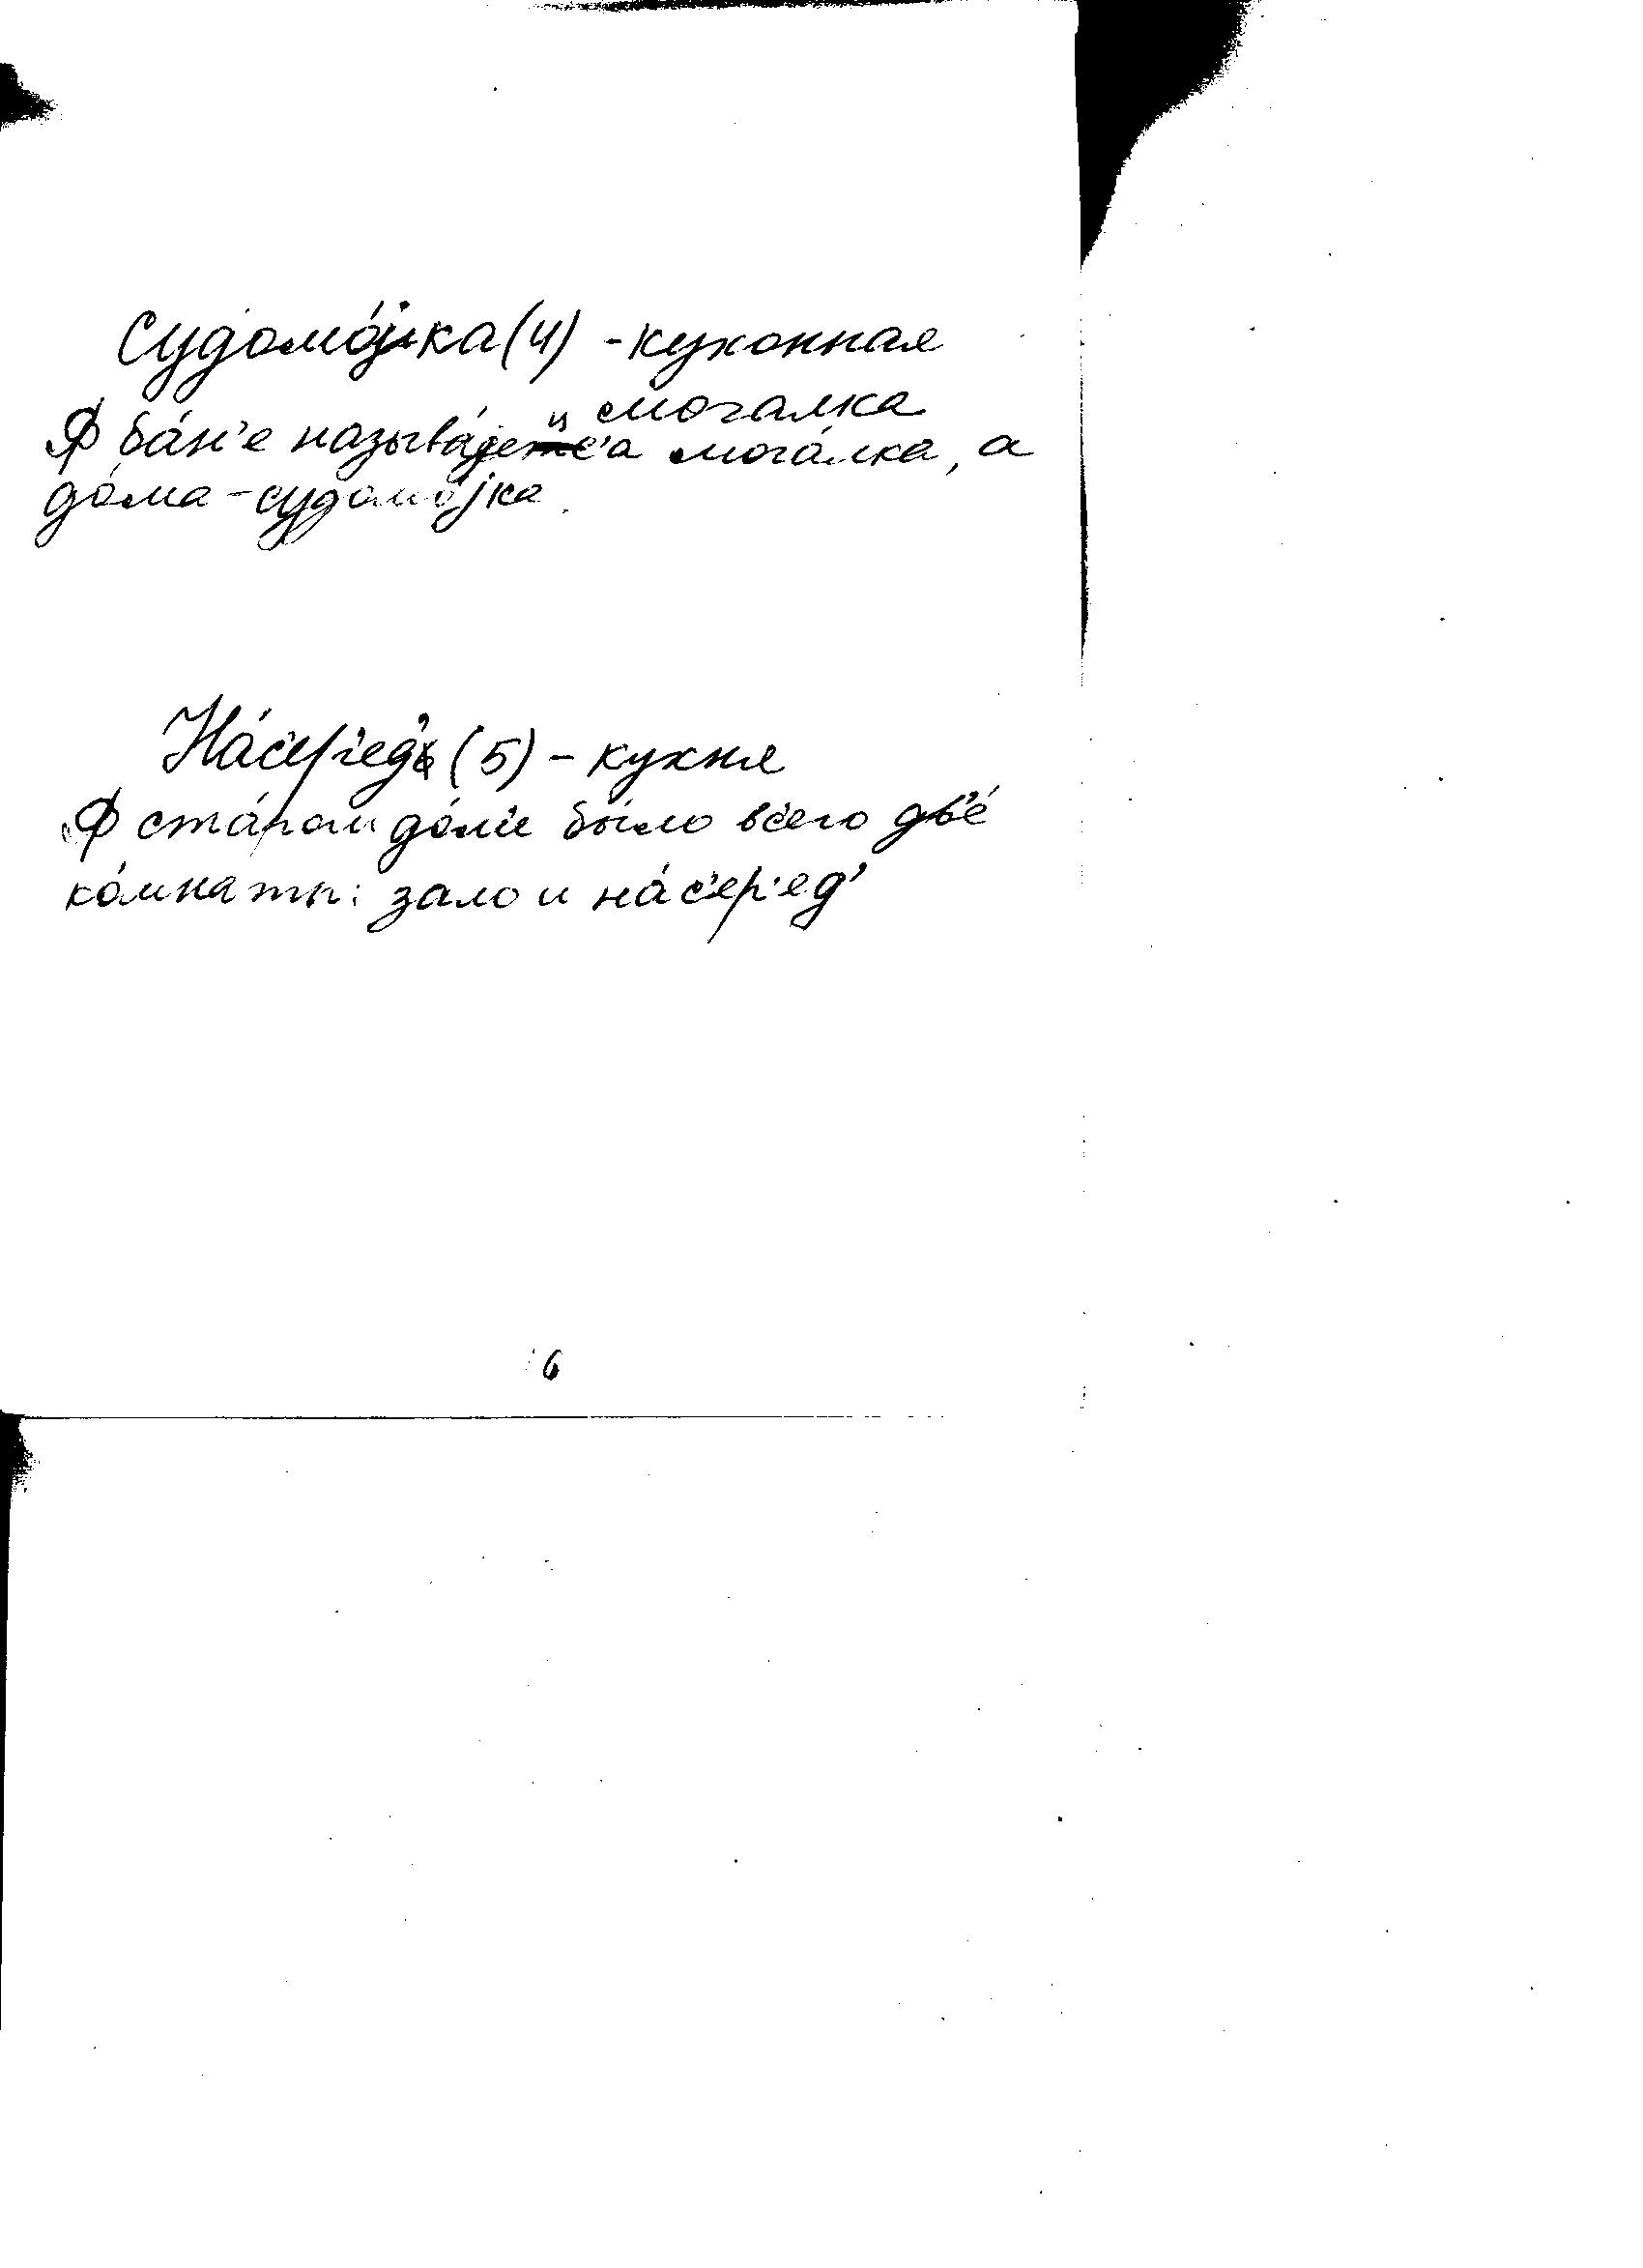 Судомо́jка (4) - кухонная
мочалка
Ф ба́н'е называ́jец'а моча́лка, а
до́ма - судомо́jка.
На́с'ер'ед' (5) - кухня
Ф ста́ром до́м'е бы́ло вс'его дв'е́
ко́мнаты: зало и на́с'ер'ед'
6